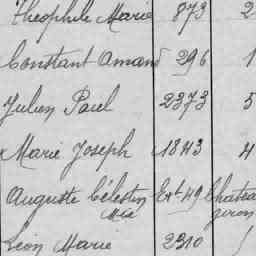 Théophile Marie 873 2
Constant Amand 296 1
Julien Paul 2373 5
Marie Joseph 1843 4
Auguste Célestin Ext 49 Chatea
Mie giron
Léon Marie 2310